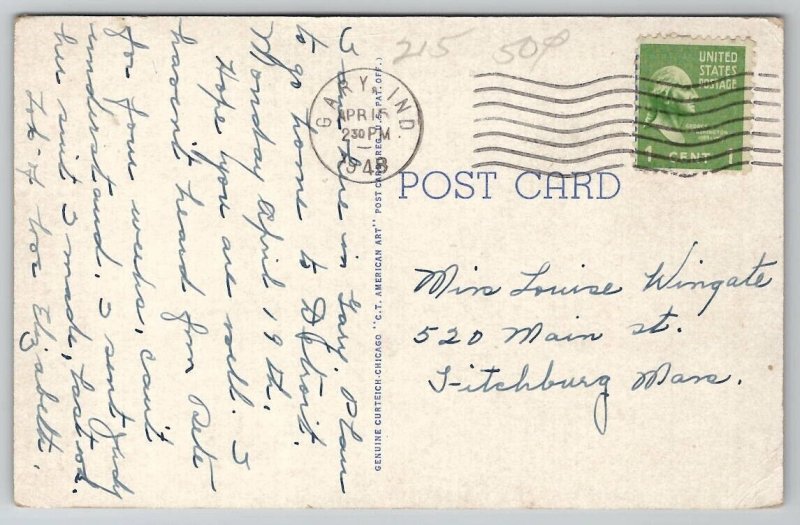 I am here in Gary. Plan
to go home to Detroit.
Monday April 19th.
Hope you are well. I
havent heard from Pete
for four weeks, can't
understand. I sent Judy
her suit I made, last wk.
Lots of love Elizabeth.
GENUINE CURTEICH-CHICAGO "C.T. AMERICAN ART" POST CARD (REG. U.S. PAT. OFF.)
215 50¢
GARY, IND
APR 15
2 30 PM
1948
UNITED
STATES
POSTAGE
GEORGE
WASHINGTON
1 CENT 1
POST CARD
Miss Louise Wingate
520 Main st.
Fitchburg Mass.